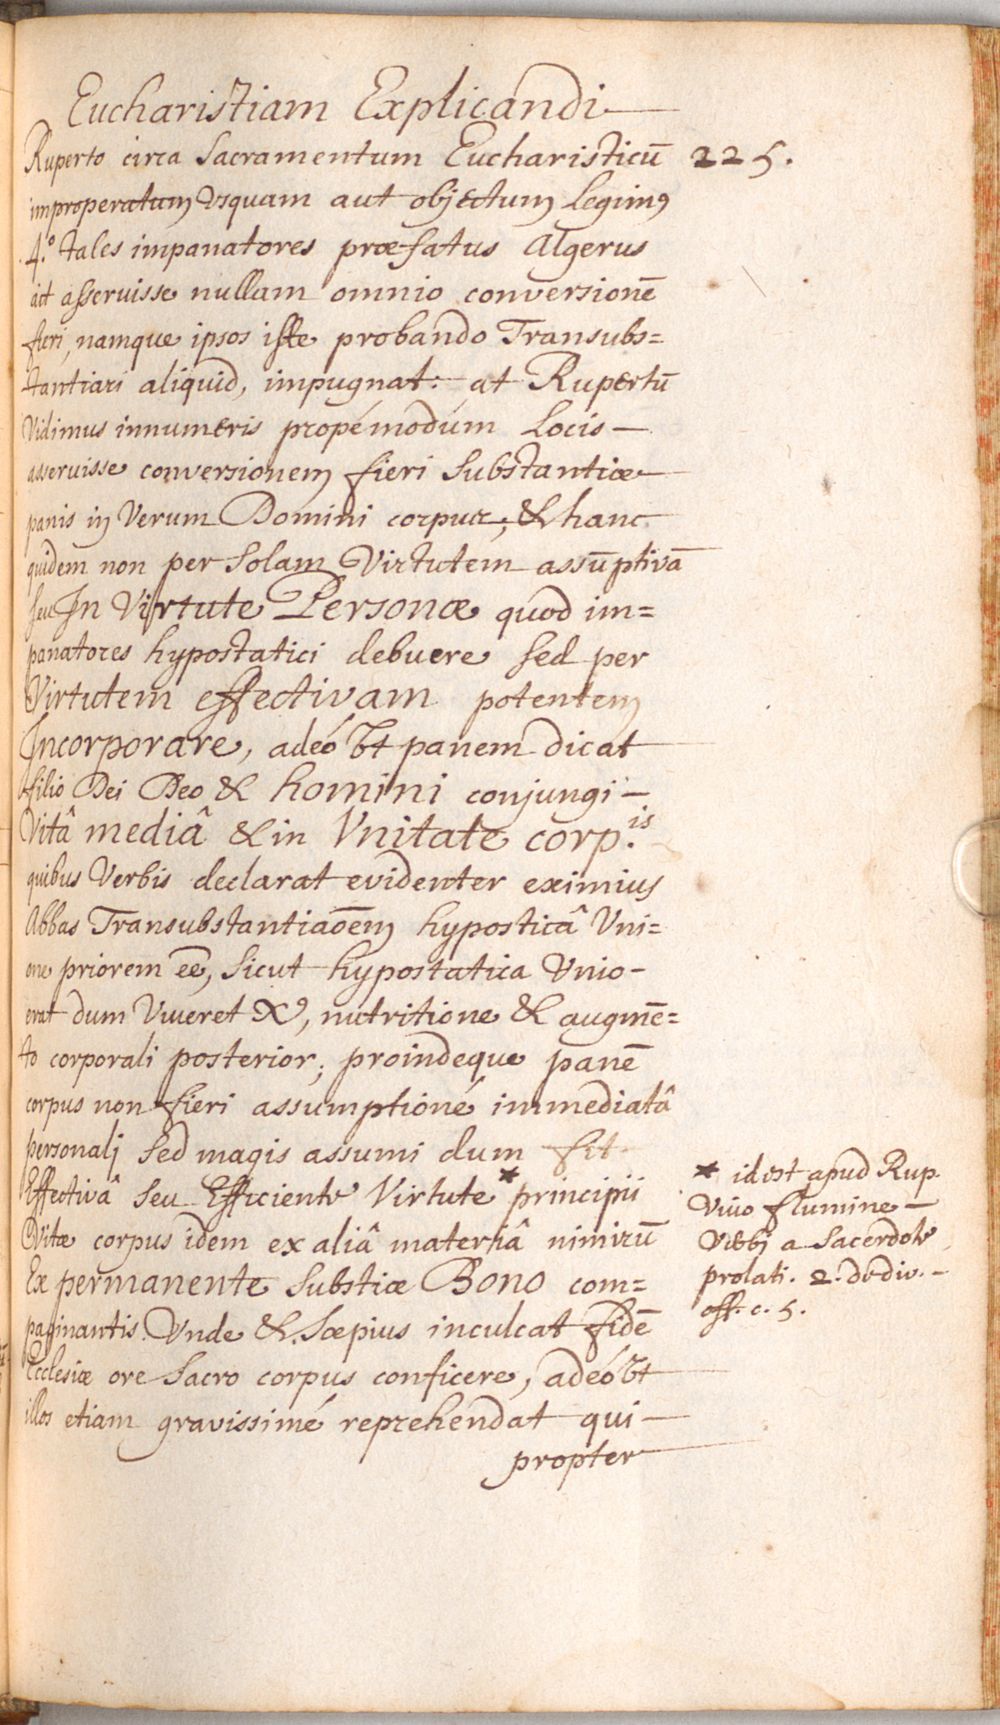 Eucharistiam Explicandi
225.
Ruperto circa Sacramentum Eucharisticū
improperatum Vsquam aut objectum Legimꝰ
4.º tales impanatores præfatus Algerus
ait asseruisse nullam omnio conversionē
fieri, namque ipsos iste probando Transubs=
tantiari aliquid, impugnat: at Rupertū
Vidimus innumeris propémodúm Locis
asseruisse conversionem fieri Substantiæ
panis in Verum Domini corpus; & hanc
quidem non per Solam Virtutem assūptivā
seu In Virtute Personæ quod im=
panatores hypostatici debuere sed per
Virtutem effectivam potentem
Incorporare, adeó Vt panem dicat
filio Dei Deo & homini conjungi
Vitâ mediâ & in Vnitate corp.is
quibus Verbis declarat evidenter eximius
Abbas Transubstantiaōem hyposticâ Vni=
one priorem eē, sicut hypostatica Vnio
erat dum Viveret Xꝰ, nutritione & augmē=
to corporali posterior; proindeque panē
corpus non fieri assumptioné immediatâ
personali sed magis assumi dum fit
Effectivâ seu Efficiente Virtute * principii
Vitæ corpus idem ex aliâ materiâ nimirū
Ex permanente Substiæ Bono com=
paginantis. Vnde & Sæpius inculcat fidē
Ecclesiæ ore Sacro corpus conficere, adeó Vt
illos etiam gravissimé reprehendat qui
propter
* id est apud Rup.
Vivo flumine
Verbi a Sacerdote
prolati. 2. de div.
off. c. 5.